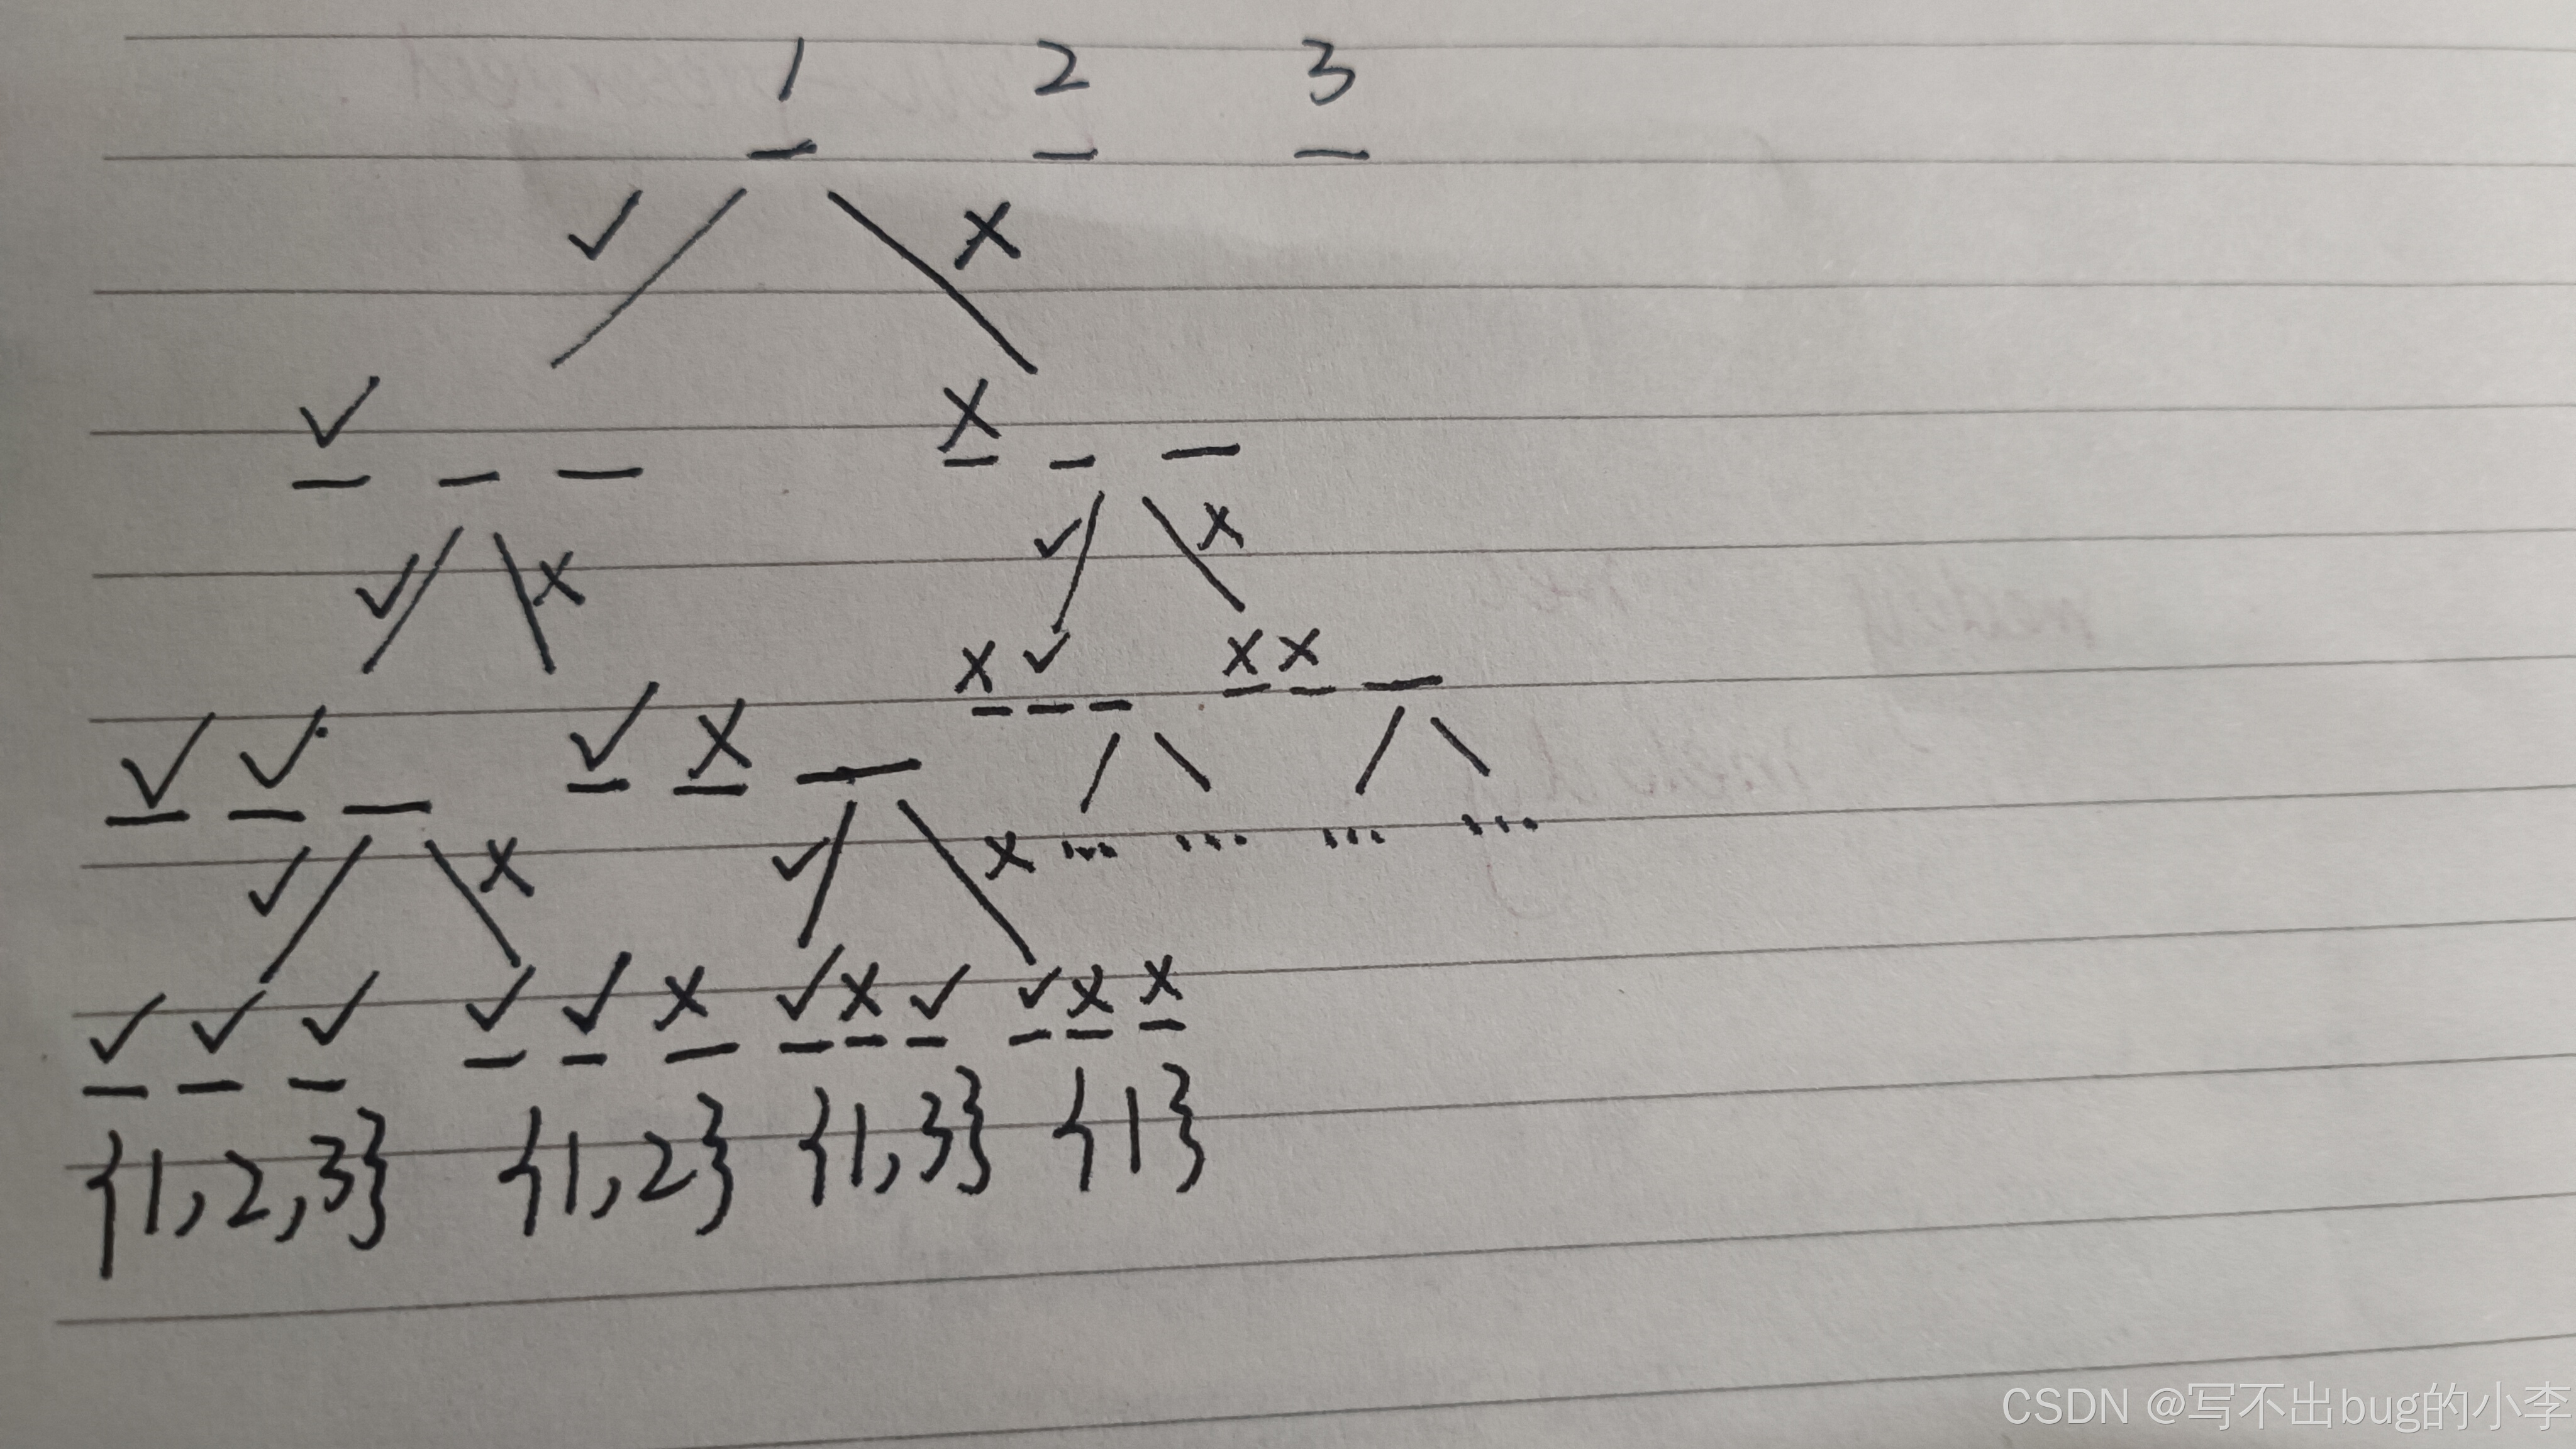 1 2 3
✓ X
✓ X
✓ X ✓ X
✓ ✓ ✓ X X ✓ X X
✓ X ✓ X ... ... ... ...
✓ ✓ ✓ ✓ ✓ X ✓ X ✓ ✓ X X
{1,2,3} {1,2} {1,3} {1}
CSDN @写不出bug的小李